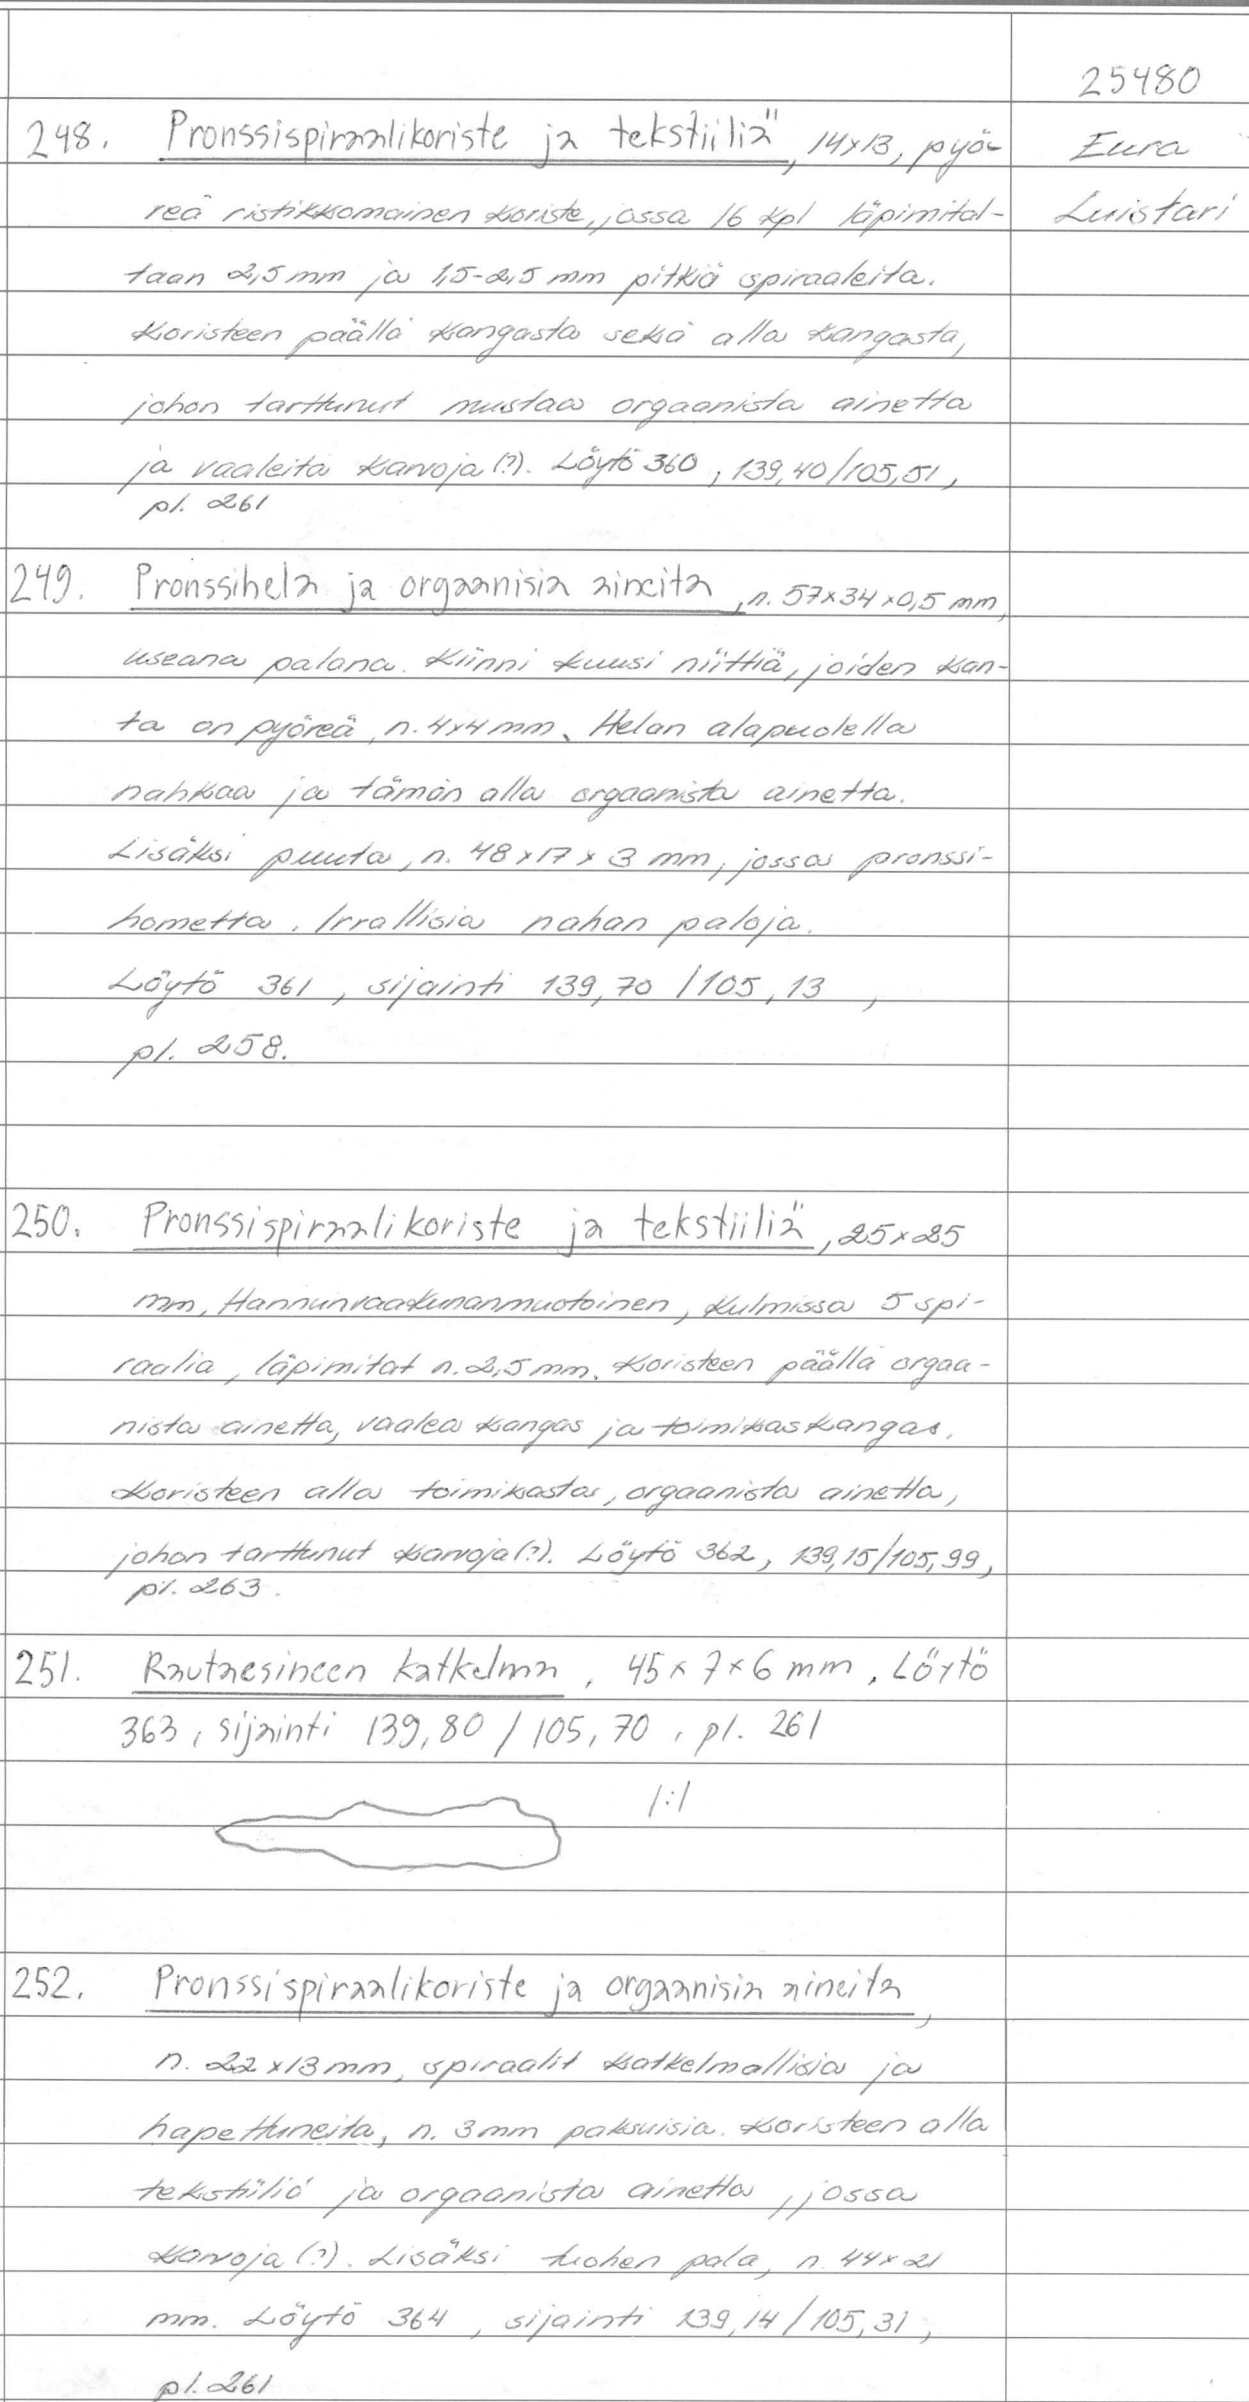 25480
Eura
Luistari
248. Pronssispiraalikoriste ja tekstiiliä, 14x13, pyö-
reä ristikkomainen koriste, jossa 16 kpl läpimital-
taan 2,5 mm ja 1,5-2,5 mm pitkiä spiraaleita.
Koristeen päällä kangasta sekä alla kangasta,
johon tarttunut mustaa orgaanista ainetta
ja vaaleita karvoja(?). Löytö 360, 139,40/105,51,
pl. 261
249. Pronssihela ja orgaanisia aineita, n. 57x34x0,5 mm,
useana palana. Kiinni kuusi niittiä, joiden kan-
ta on pyöreä, n. 4x4 mm. Helan alapuolella
nahkaa ja tämän alla orgaanista ainetta.
Lisäksi puuta, n. 48x17x3 mm, jossa pronssi-
hometta. Irrallisia nahan paloja.
Löytö 361, sijainti 139,70/105,13,
pl. 258.
250. Pronssispiraalikoriste ja tekstiiliä, 25x25
mm, Hannunvaakunanmuotoinen, kulmissa 5 spi-
raalia, läpimitat n. 2,5 mm. Koristeen päällä orgaa-
nista ainetta, vaalea kangas ja toimikaskangas.
Koristeen alla toimikasta, orgaanista ainetta,
johon tarttunut karvoja(?). Löytö 362, 139,15/105,99,
pl. 263.
251. Rautaesineen katkelma, 45x7x6 mm, Löytö
363, sijainti 139,80/105,70, pl. 261
1:1
252. Pronssispiraalikoriste ja orgaanisia aineita,
n. 22x13 mm, spiraalit katkelmallisia ja
hapettuneita, n. 3 mm paksuisia. Koristeen alla
tekstiiliä ja orgaanista ainetta, jossa
karvoja(?). Lisäksi tuohen pala, n. 44x21
mm. Löytö 364, sijainti 139,14/105,31,
pl. 261